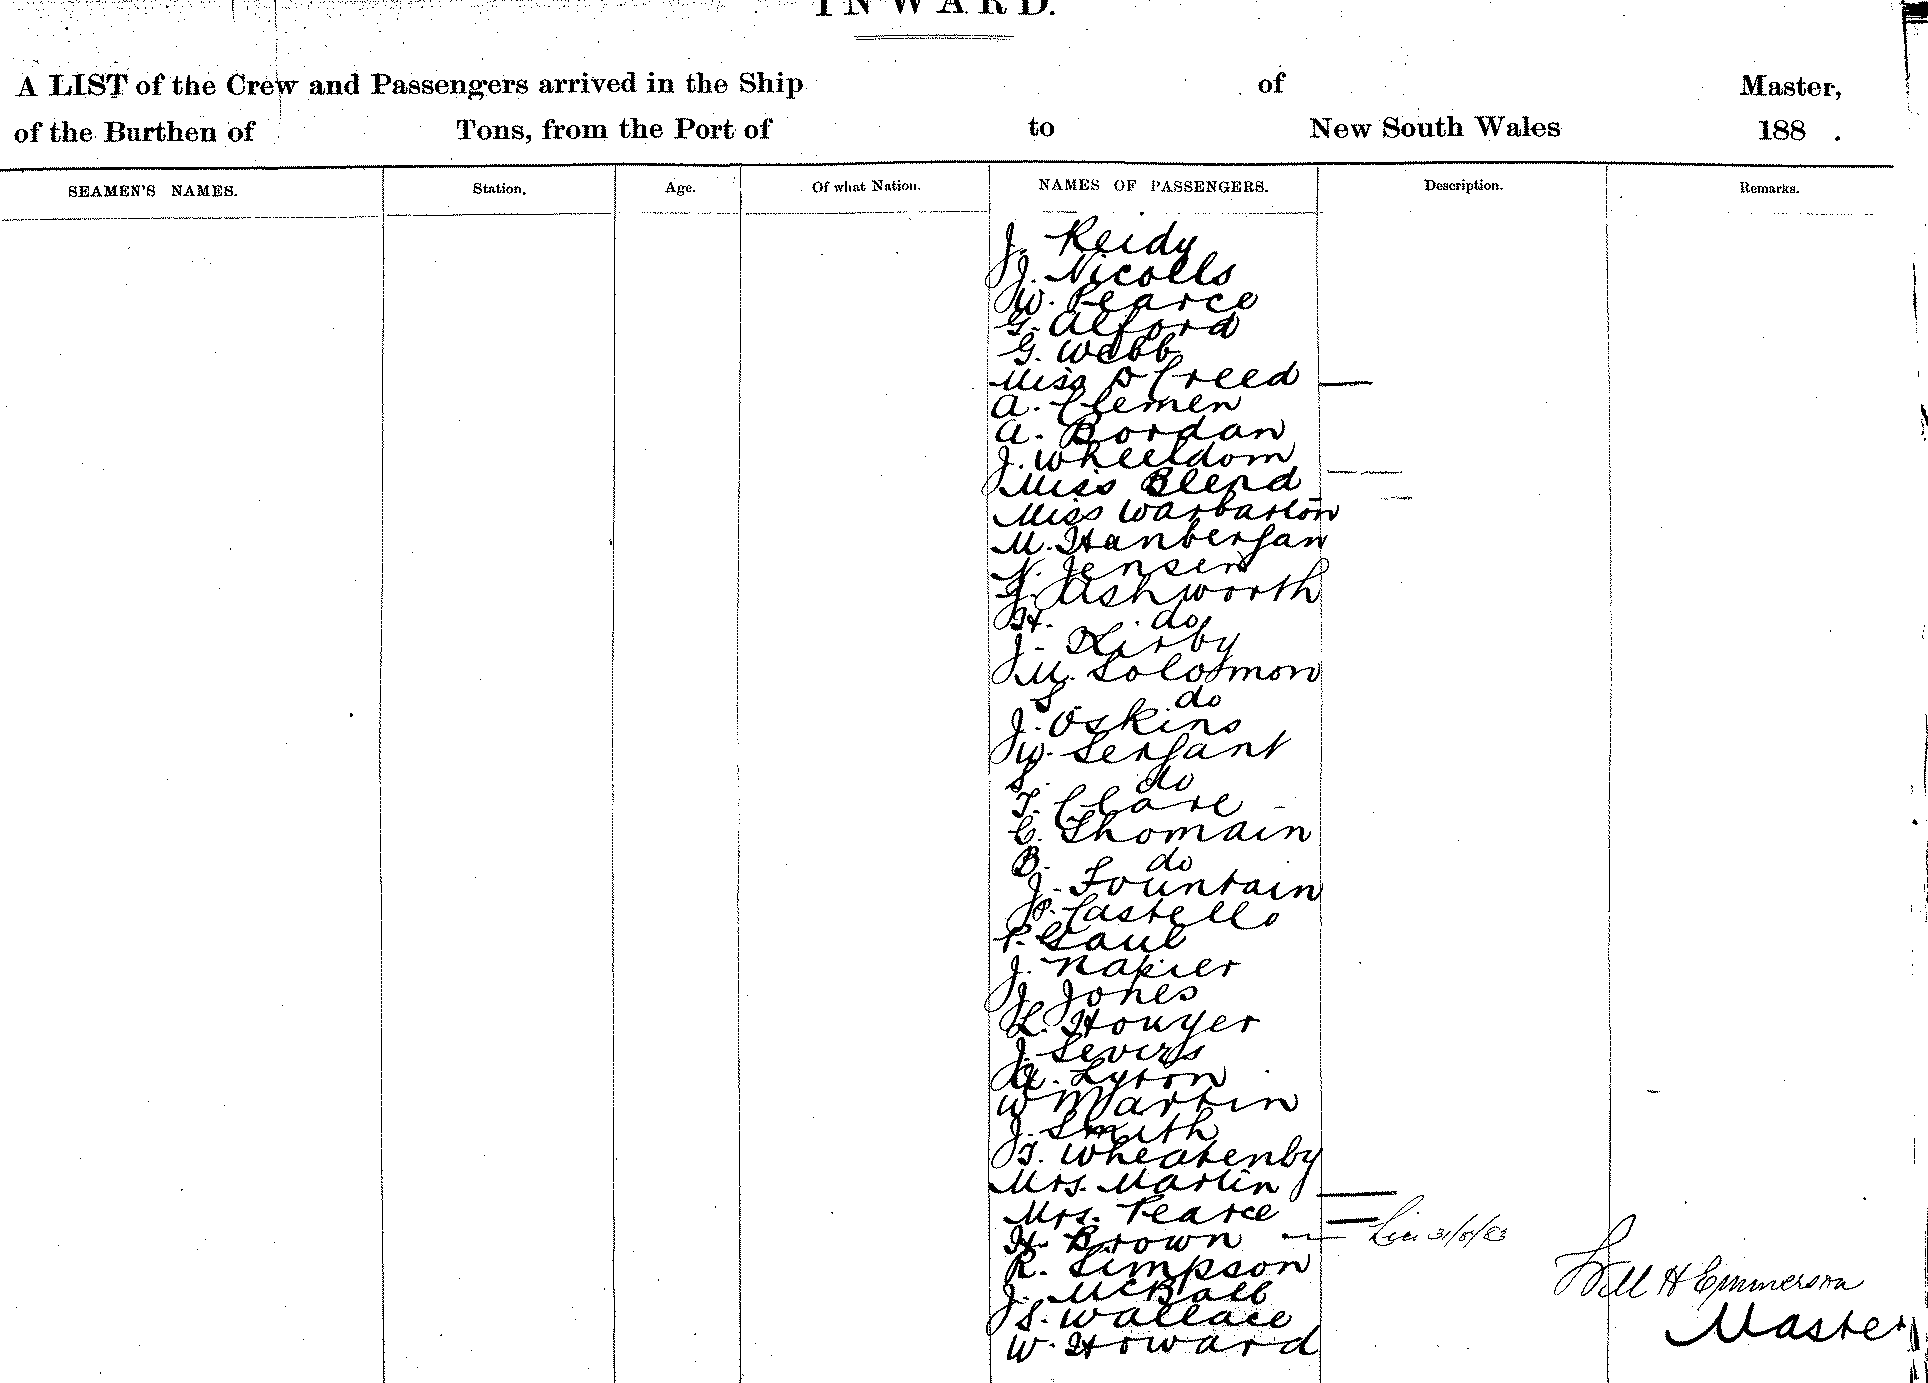 INWARD.
A LIST of the Crew and Passengers arrived in the Ship of Master,
of the Burthen of Tons, from the Port of to New South Wales 188 .
SEAMEN'S NAMES. Station. Age. Of what Nation. NAMES OF PASSENGERS. Description. Remarks.
J. Reidy
J. Nicolls
W. Pearce
G. Alford
G. Webb
Miss Creed
A. Clemen
A. Bordan
J. Wheeldom
Miss Blend
Miss Warbarton
M. Hanbersan
N. Jensen
J. Ashworth
H. do
J. Kirby
M. Solomon
S. do
J. Oskins
W. Serjant
S. do
T. Clare
C. Thomain
B. do
J. Fountain
P. Castello
P. Gaul
J. Napier
J. Jones
L. Houyer
J. Sevirs
A. Lyron
W Martin
J. Smith
T. Wheatenby
Mrs. Martin
Mrs. Pearce
H. Brown
R. Simpson
J. McBalb
S. Wallace
W. Howard
Will H Emmerson
Master